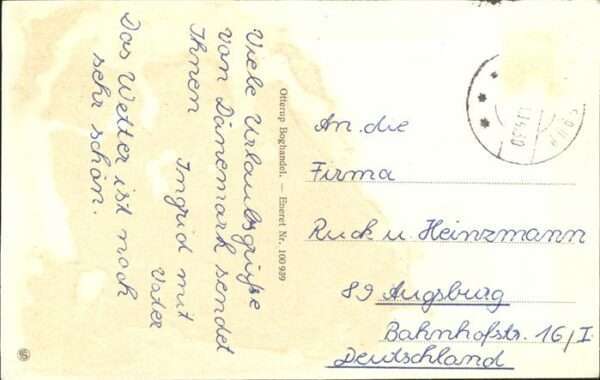 Viele Urlaubsgrüße
von Dänemark sendet
Ihnen Ingrid mit
Vater
Das Wetter ist noch
sehr schön.
Otterup Boghandel. — Eneret Nr. 100 939
An die
Firma
Ruck u. Heinzmann
89 Augsburg
Bahnhofstr. 16/I
Deutschland